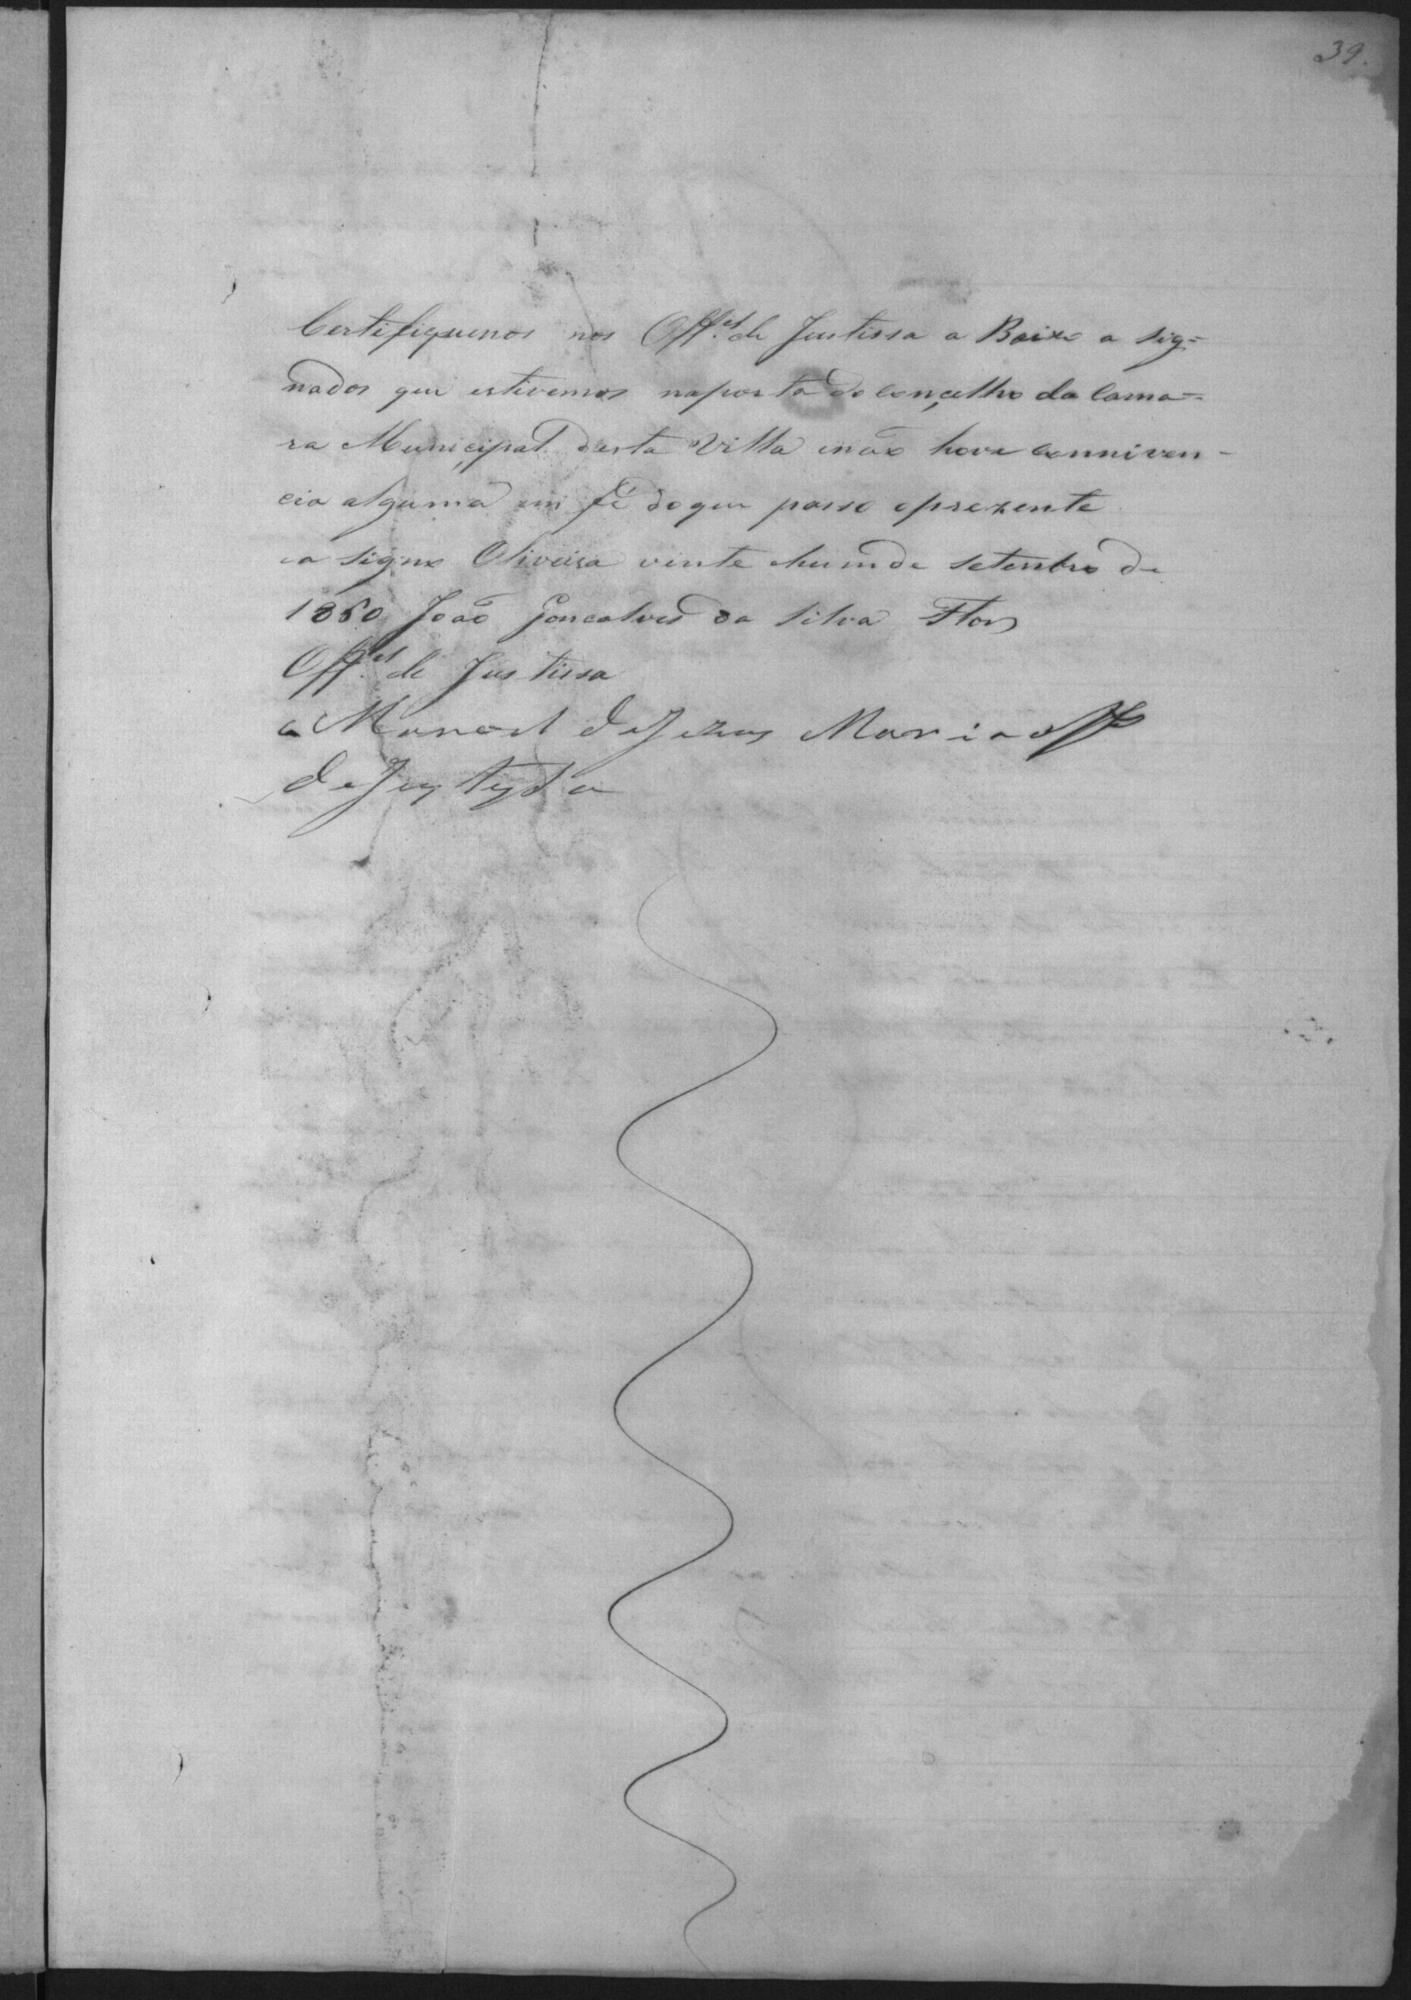 39.
Certifiquemos nos Off.es de Justissa a Baixo a sig=
nados que estivemos naporta do Conçelho da Cama=
ra Municipal desta Villa enão hove Conniven-
cia alguma em fé doque passo oprezente
e a signo Oliveira vinte ehum de Setenbro de
1860 João Goncalves da Silva Flor
Off.es de Justissa
Manoel deJezus Maria off
deJustysa